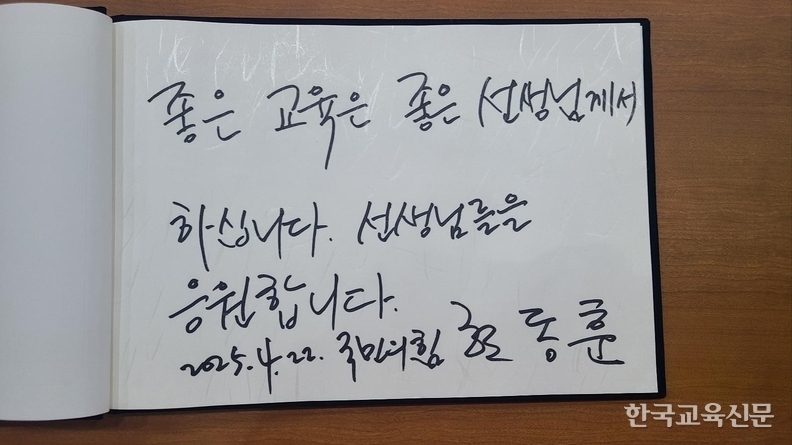 좋은 교육은 좋은 선생님께서
하십니다. 선생님들을
응원합니다.
2025.4.22. 국민의힘 한동훈
한국교육신문